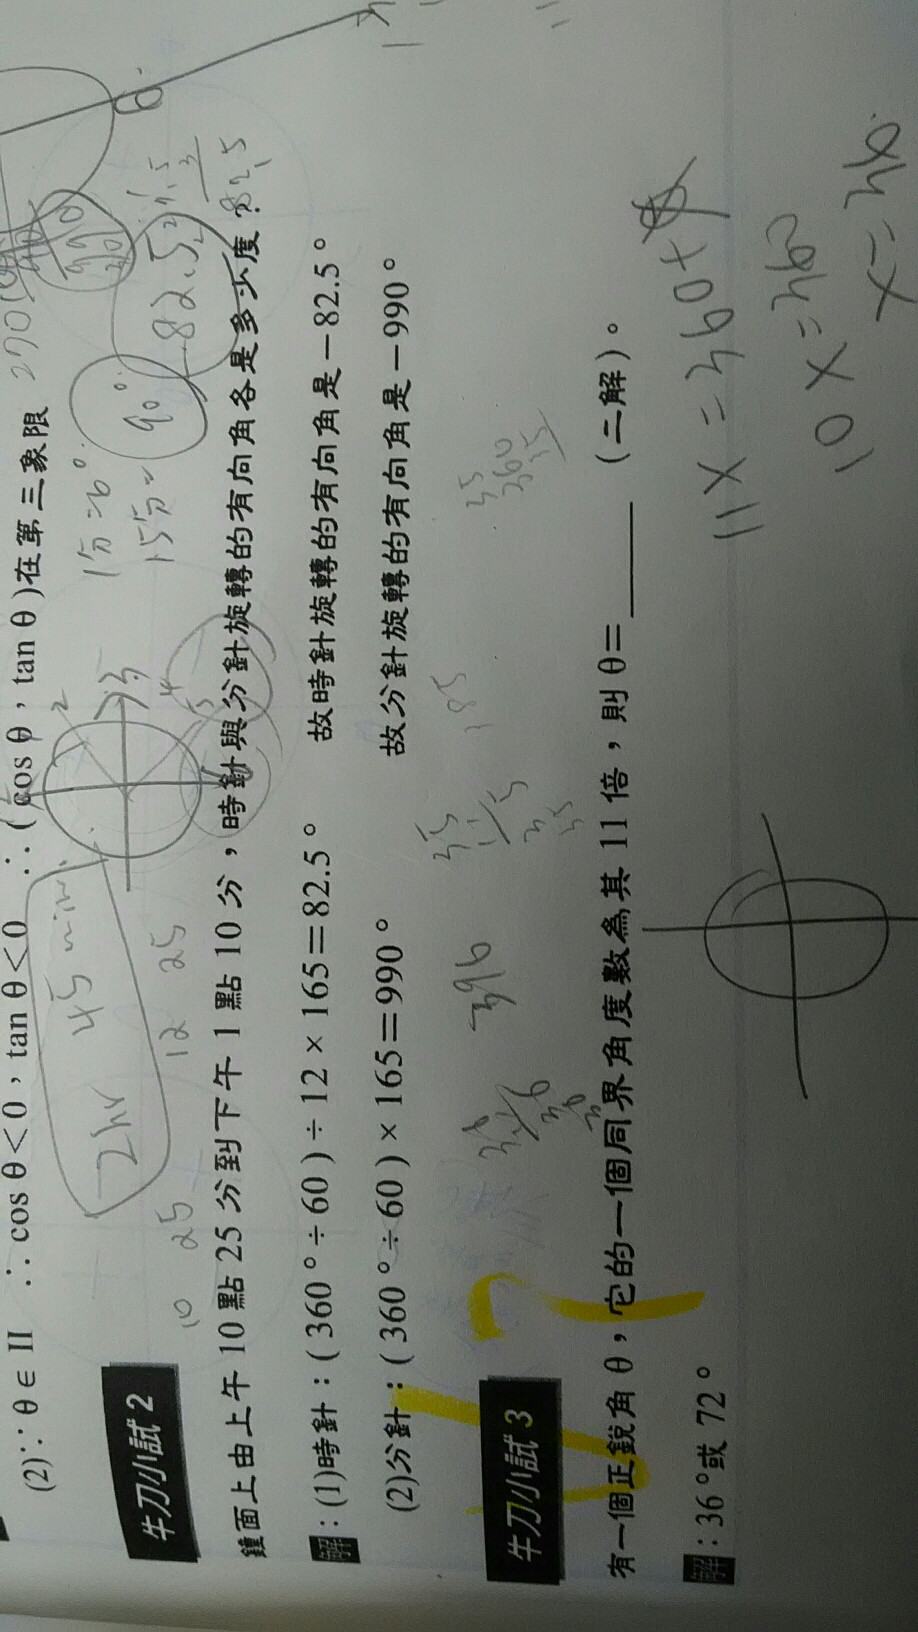 (2)∵θ∈II ∴cosθ<0,tanθ<0 ∴(cosθ,tanθ)在第三象限
2hr 45 min
1分=6°
15分=90°
82.5
10 25
12 25
牛刀小試 2
鐘面上由上午 10 點 25 分到下午 1 點 10 分,時針與分針旋轉的有向角各是多少度?
解:(1)時針:(360°÷60)÷12×165=82.5° 故時針旋轉的有向角是-82.5°
(2)分針:(360°÷60)×165=990° 故分針旋轉的有向角是-990°
396
牛刀小試 3
有一個正銳角θ,它的一個同界角度數為其 11 倍,則θ=______(二解)。
解:36°或 72°
11X=360+X
10X=360
X=36.